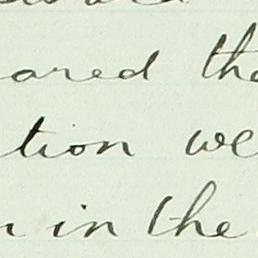 ared the
tion we
in the